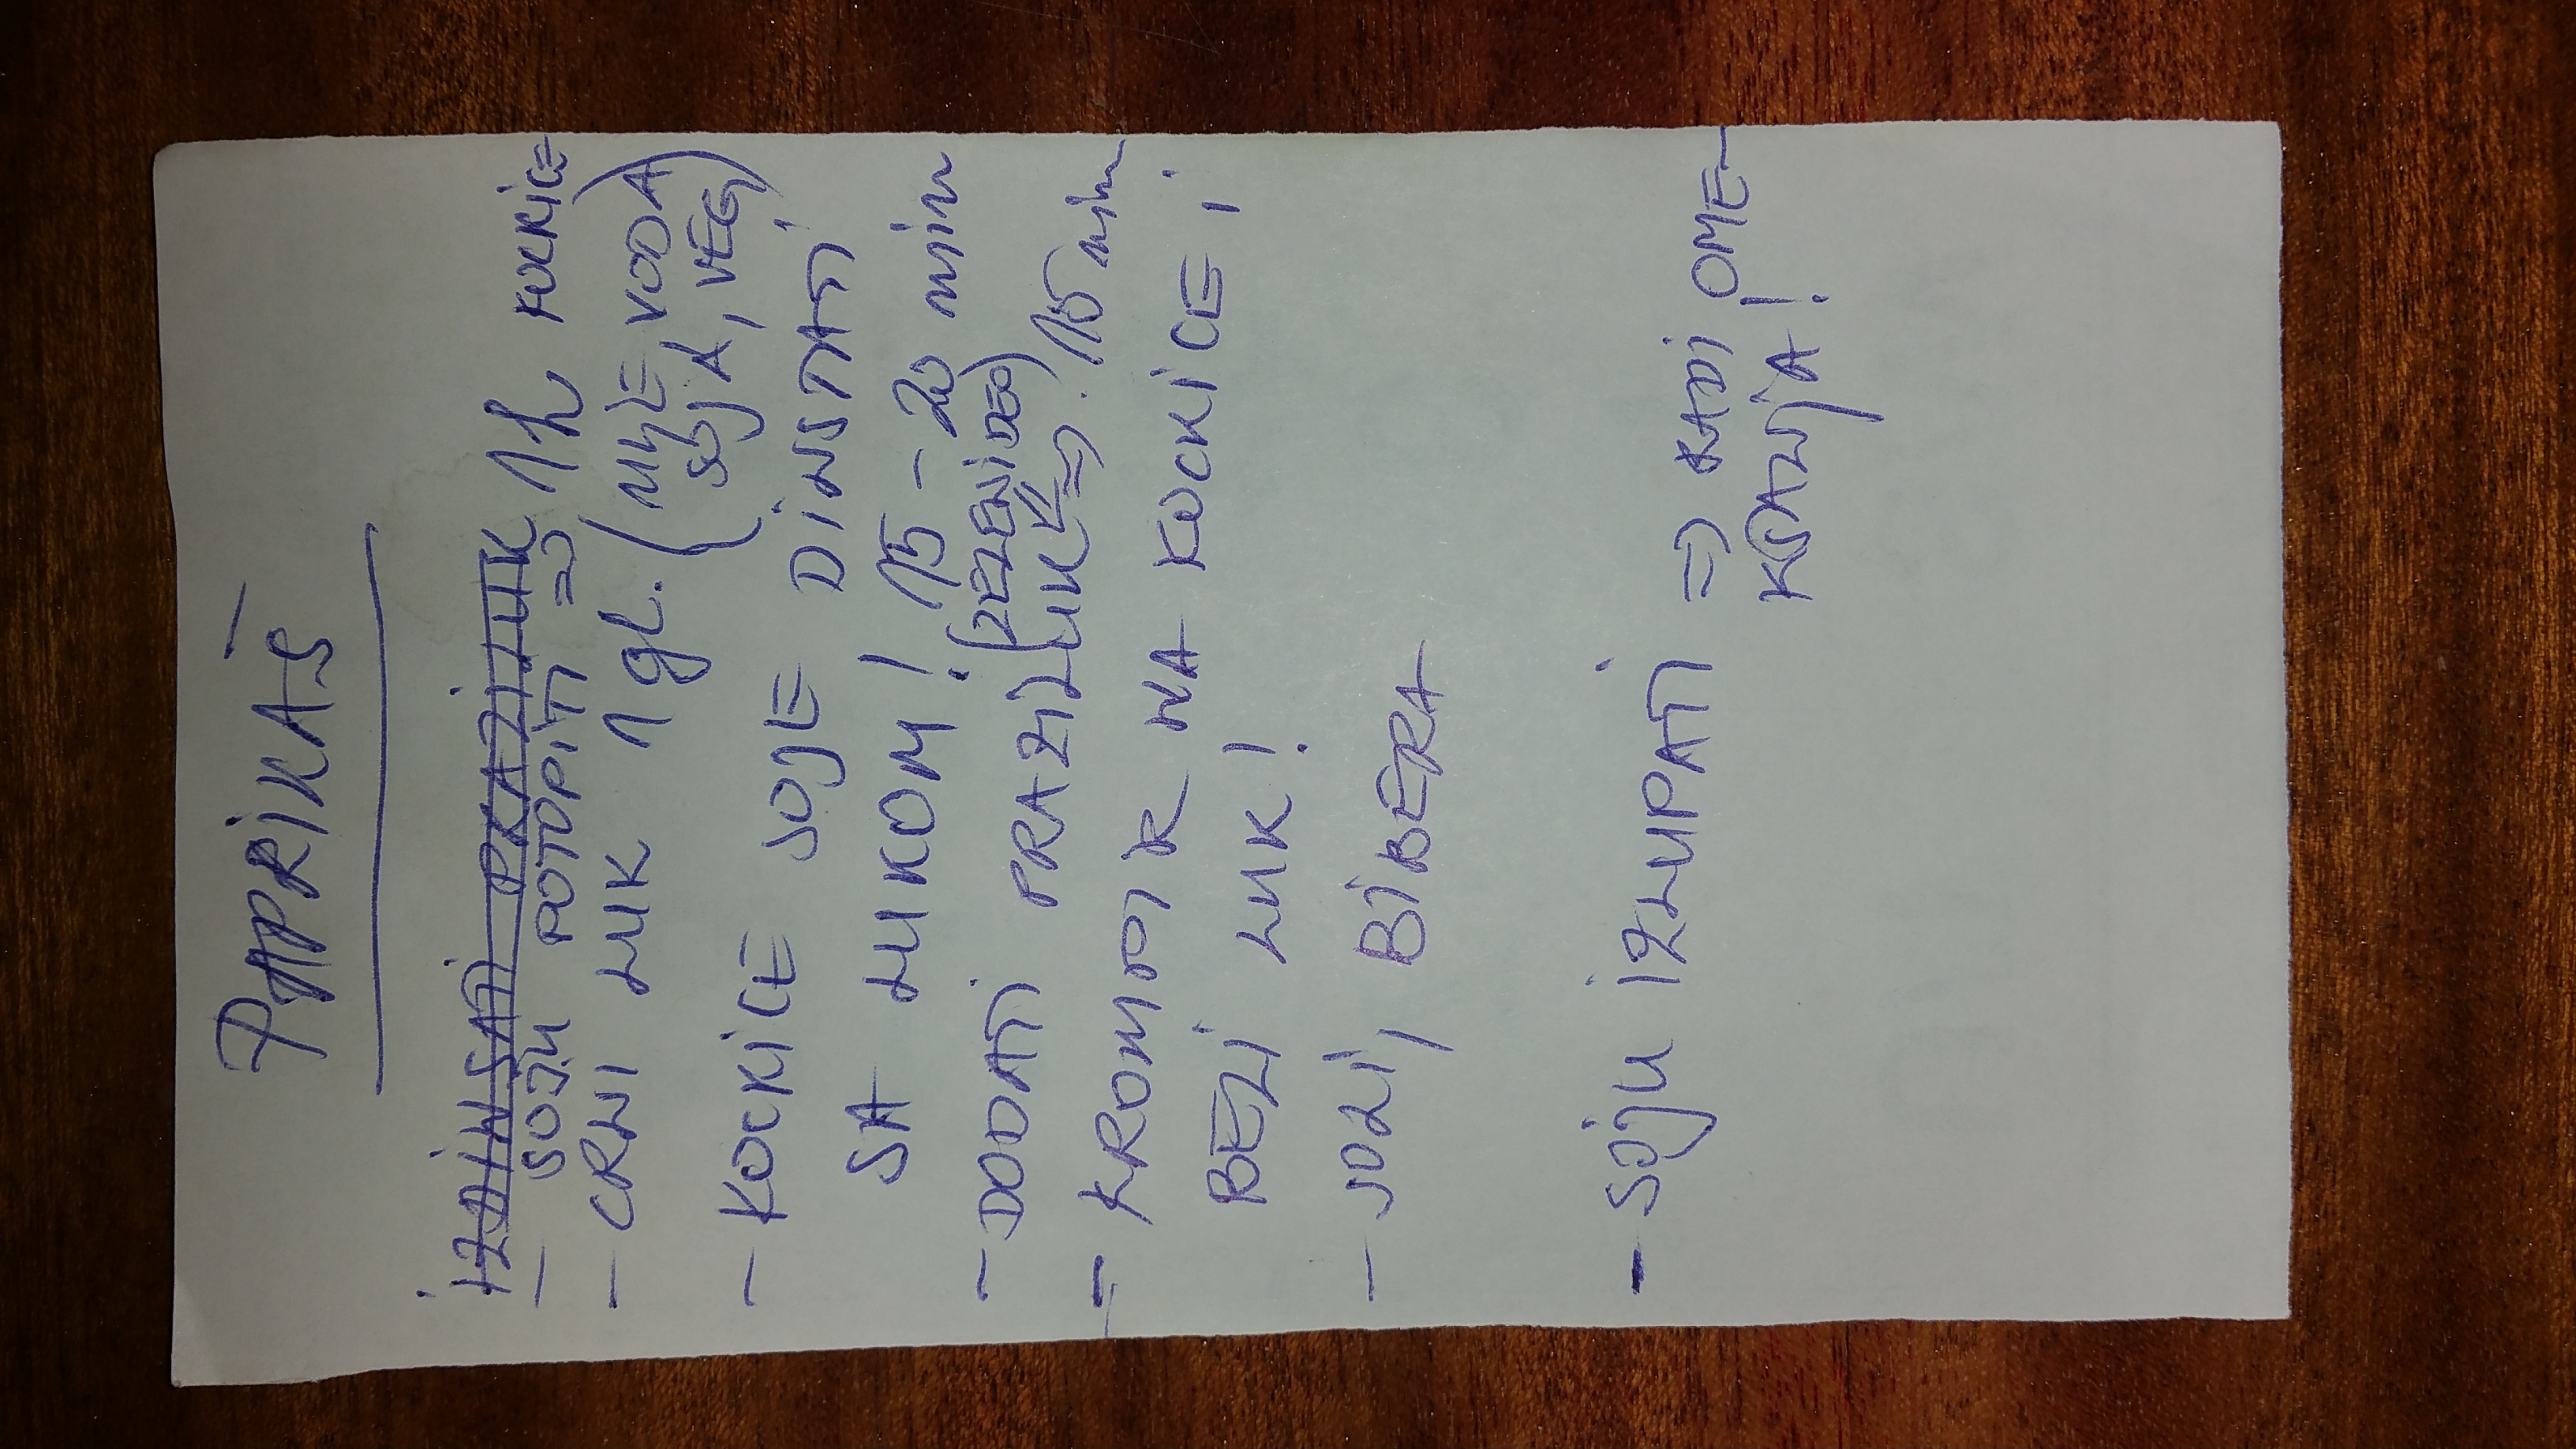 PAPRIKAŠ
IZDINSATI PRAZILUK
- SOJU POTOPITI => 1h KOCKICE
- CRNI LUK 1 gl. (ULJE, VODA
SOJA, VEG)
- KOCKICE SOJE DINSTATI
SA LUKOM! 15 - 20 min
(ZELENI DEO)
- DODATI PRAZILUK => 15 min
- KROMPIR NA KOCKICE i
BELI LUK!
- SOLI, BIBERA
- SOJU IZLUPATI => RADI OME-
KŠANJA!